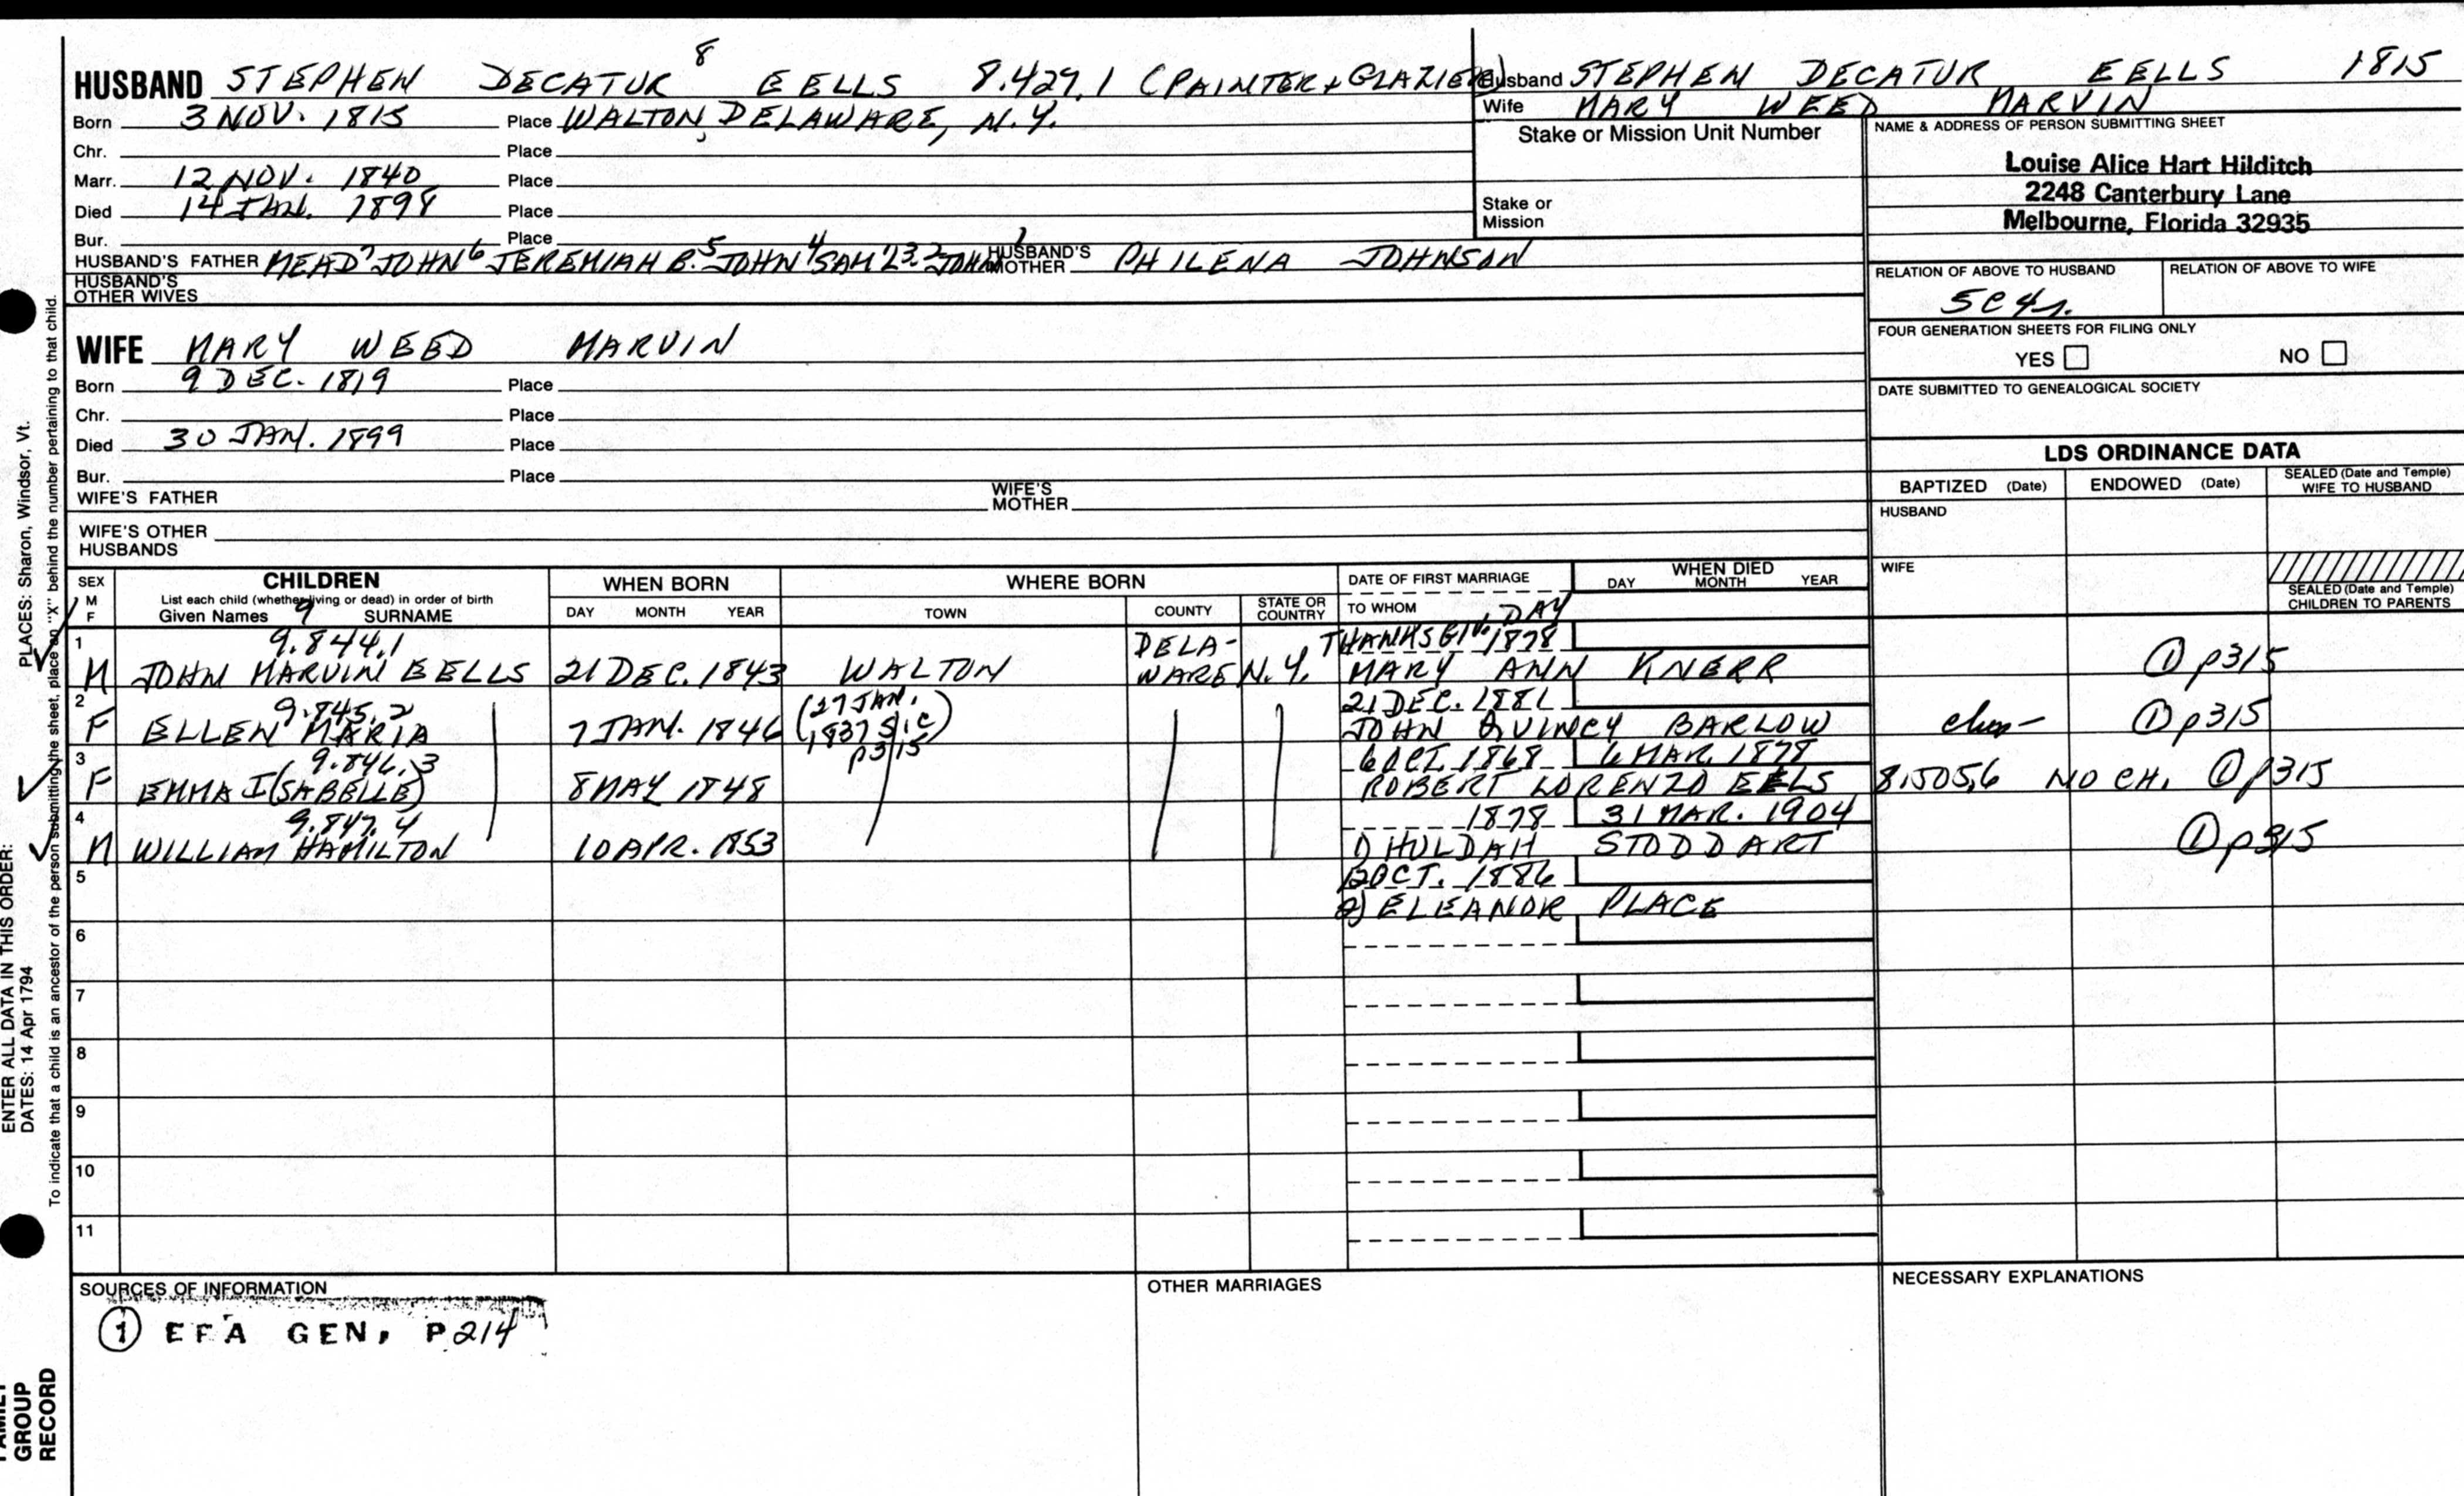 HUSBAND STEPHEN DECATUR 8 EELLS 8.429.1 (PAINTER + GLAZIER)
Born 3 NOV. 1815 Place WALTON, DELAWARE, N.Y.
Chr. Place
Marr. 12 NOV. 1840 Place
Died 14 JAN. 1898 Place
Bur. Place
HUSBAND'S FATHER MEAD 7 JOHN 6 JEREMIAH B. 5 JOHN 4 SAM'L 3.2 JOHN 1 HUSBAND'S MOTHER PHILENA JOHNSON
HUSBAND'S OTHER WIVES
Husband STEPHEN DECATUR EELLS 1815
Wife MARY WEED MARVIN
Stake or Mission Unit Number
Stake or
Mission
NAME & ADDRESS OF PERSON SUBMITTING SHEET
Louise Alice Hart Hilditch
2248 Canterbury Lane
Melbourne, Florida 32935
RELATION OF ABOVE TO HUSBAND RELATION OF ABOVE TO WIFE
5C4r.
FOUR GENERATION SHEETS FOR FILING ONLY
YES NO
DATE SUBMITTED TO GENEALOGICAL SOCIETY
WIFE MARY WEED MARVIN
Born 9 DEC. 1819 Place
Chr. Place
Died 30 JAN. 1899 Place
Bur. Place
WIFE'S FATHER WIFE'S MOTHER
WIFE'S OTHER
HUSBANDS
LDS ORDINANCE DATA
BAPTIZED (Date) ENDOWED (Date) SEALED (Date and Temple) WIFE TO HUSBAND
HUSBAND
WIFE
SEALED (Date and Temple)
CHILDREN TO PARENTS
SEX M F CHILDREN WHEN BORN WHERE BORN DATE OF FIRST MARRIAGE WHEN DIED
List each child (whether living or dead) in order of birth DAY MONTH YEAR
Given Names 9 SURNAME DAY MONTH YEAR TOWN COUNTY STATE OR COUNTRY TO WHOM
1 9.844.1 DELA- THANKSGIV. DAY 1878
M JOHN MARVIN EELLS 21 DEC. 1843 WALTON WARE N.Y. MARY ANN KNERR ① p315
2 9.845.2 (27 JAN. 21 DEC. 1881
F ELLEN MARIA 7 JAN. 1846 1837 SIC) p315 JOHN QUINCY BARLOW ① p315
3 9.846.3 6 OCT. 1868 6 MAR. 1878
F EMMA I(SABELLE) 8 MAY 1848 ROBERT LORENZO EELLS 8.505.6 NO CH. ① p315
4 9.847.4 1878 31 MAR. 1904
M WILLIAM HAMILTON 10 APR. 1853 1) HULDAH STODDART ① p315
5 OCT. 1886
2) ELEANOR PLACE
6
7
8
9
10
11
SOURCES OF INFORMATION
① EFA GEN, P214
OTHER MARRIAGES
NECESSARY EXPLANATIONS
PLACES: Sharon, Windsor, Vt.
ENTER ALL DATA IN THIS ORDER:
DATES: 14 Apr 1794
To indicate that a child is an ancestor of the person submitting the sheet, place an "X" behind the number pertaining to that child.
FAMILY
GROUP
RECORD